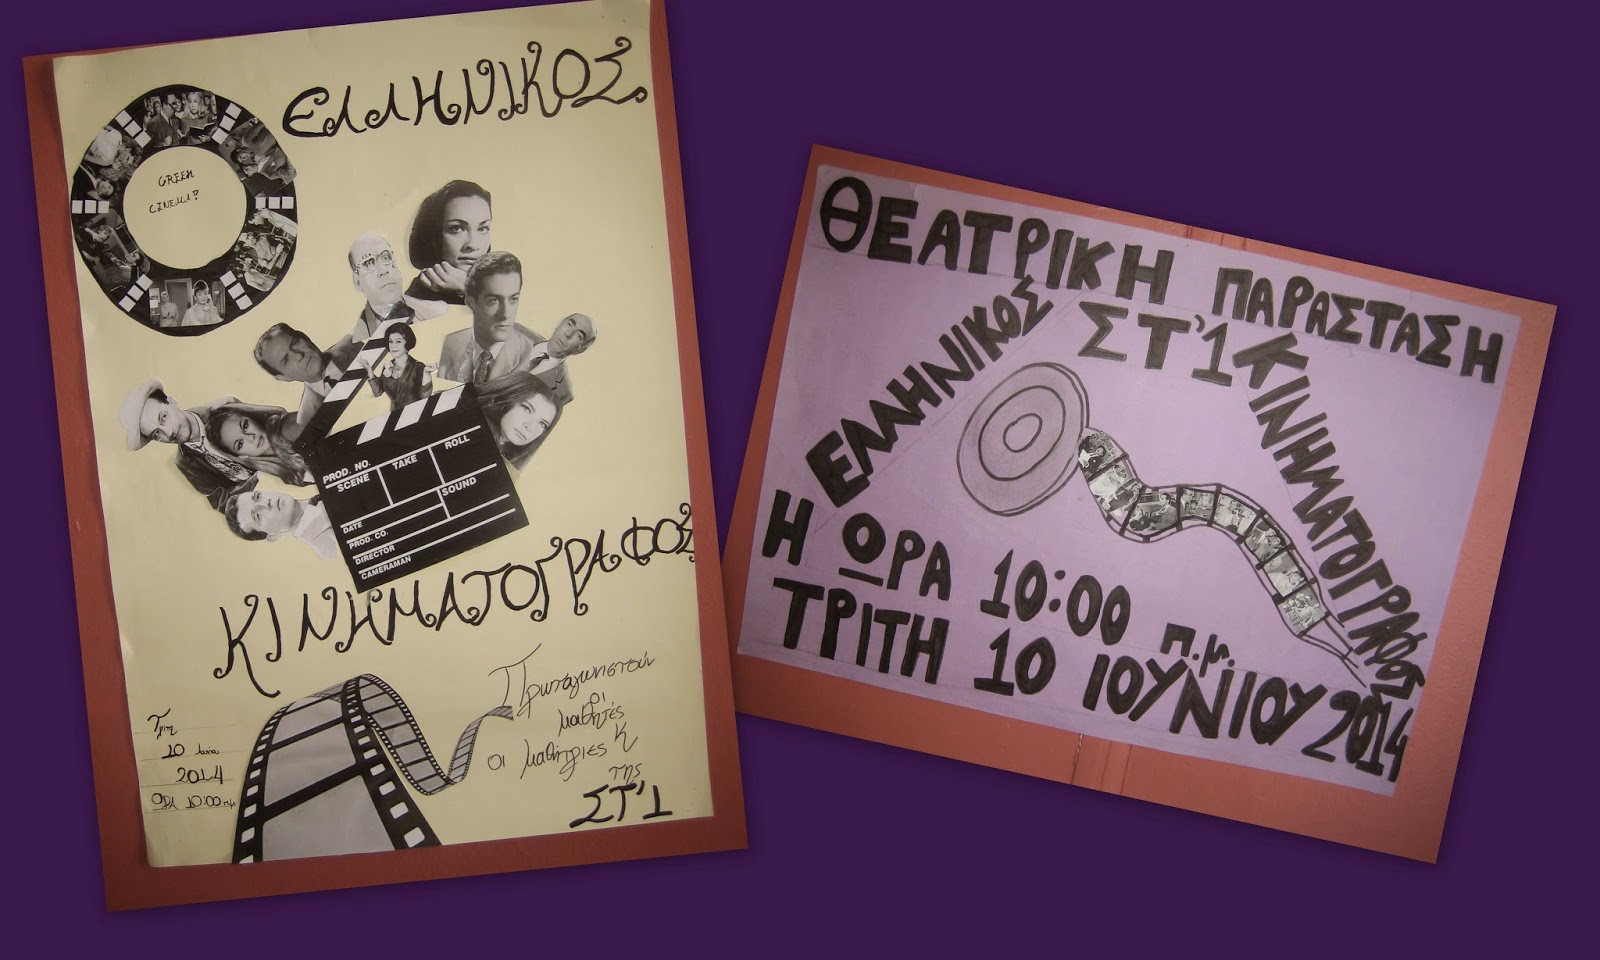 ΕΛΛΗΝΙΚΟΣ
GREEK
CINEMA!
PROD. NO.
SCENE
TAKE
ROLL
SOUND
DATE
PROD. CO.
DIRECTOR
CAMERAMAN
ΚΙΝΗΜΑΤΟΓΡΑΦΟΣ
Πρωταγωνιστούν
οι
μαθητές
οι μαθήτριες
της
ΣΤ'1
10
2014
ΩΡΑ 10:00 π.μ.
ΘΕΑΤΡΙΚΗ ΠΑΡΑΣΤΑΣΗ
ΣΤ'1
ΕΛΛΗΝΙΚΟΣ
ΚΙΝΗΜΑΤΟΓΡΑΦΟΣ
Η ΩΡΑ 10:00 π.μ.
ΤΡΙΤΗ 10 ΙΟΥΝΙΟΥ 2014